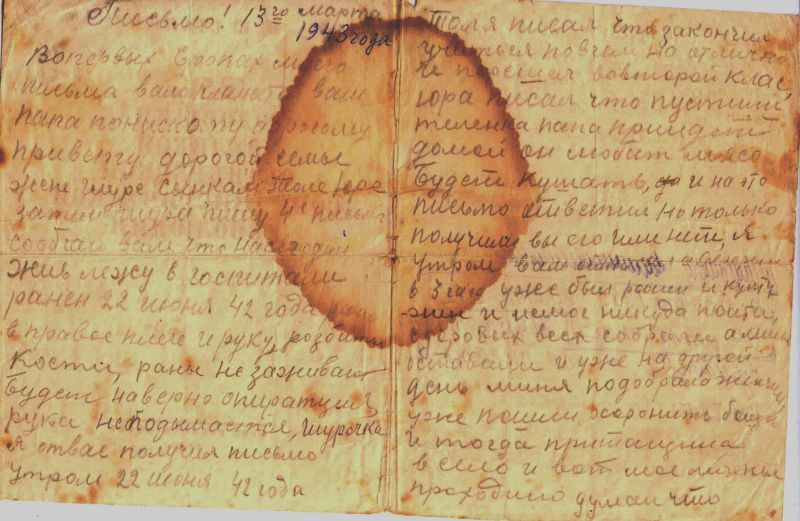 Письмо! 13го марта
1943 года
Вопервых строках моего
письма вам кланяюсь ваш
папа по низкому дорогому
привету дорогой семье
жене Шуре сынкам Толе Юре
затем Шура пишу 4е письмо
сообщаю вам что на сегодня
жив лежу в госпитали
ранен 22 июня 42 года
в правое плечо и руку, розбиты
кости, раны не заживают
будет наверно опирация,
рука неподымается, Шурочка
я отвас получил письмо
утром 22 июня 42 года
Толя писал что закончил
учиться по всем на отлично
и перешел вовторой клас,
Юра писал что пустили
теленка папа прийдет
домой он любит мясо
будет кушать, и на это
письмо ответил но только
получили вы его или нет, я
утром вам
в 3 часа уже был ранен и
и немог никуда пойти,
здоровых всех собрали а миня
оставили и уже на другой
день миня подобрали
уже пошли хоронить
и тогда притащили
в село и вот мое лечения
проходило думал что